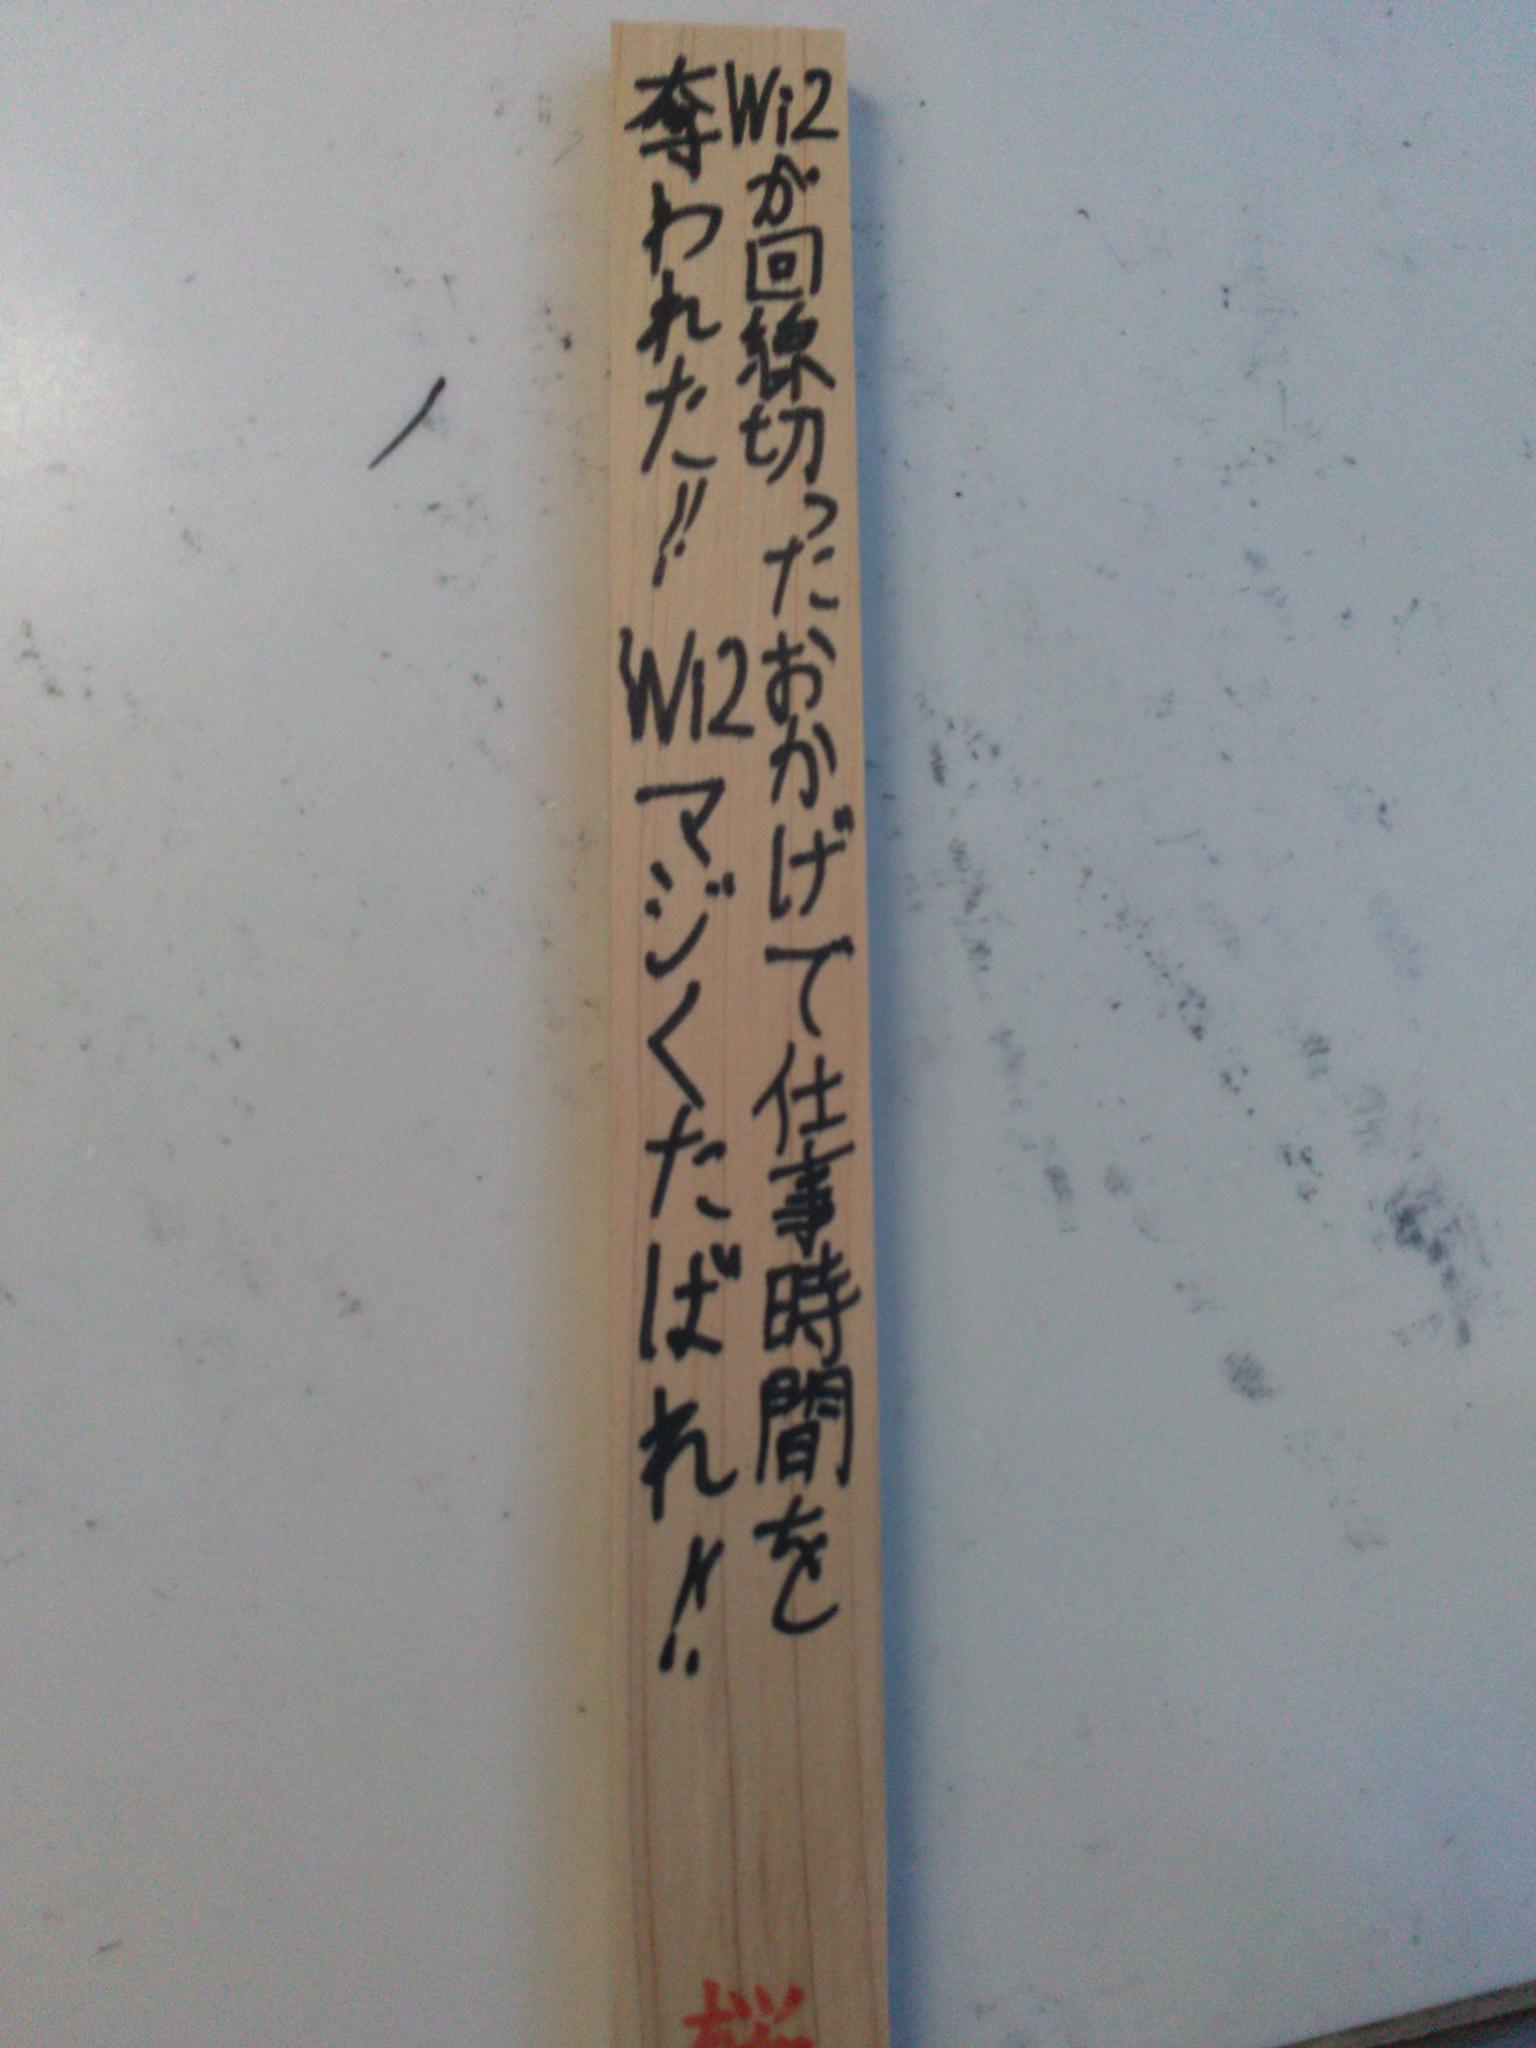 Wi2が回線切ったおかげて仕事時間を
奪われた!! Wi2マジくたばれ!!
桜